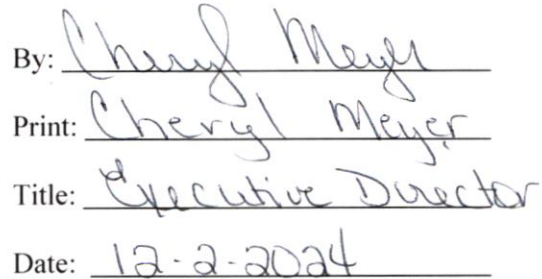 By: Cheryl Meyer
Print: Cheryl Meyer
Title: Executive Director
Date: 12-2-2024